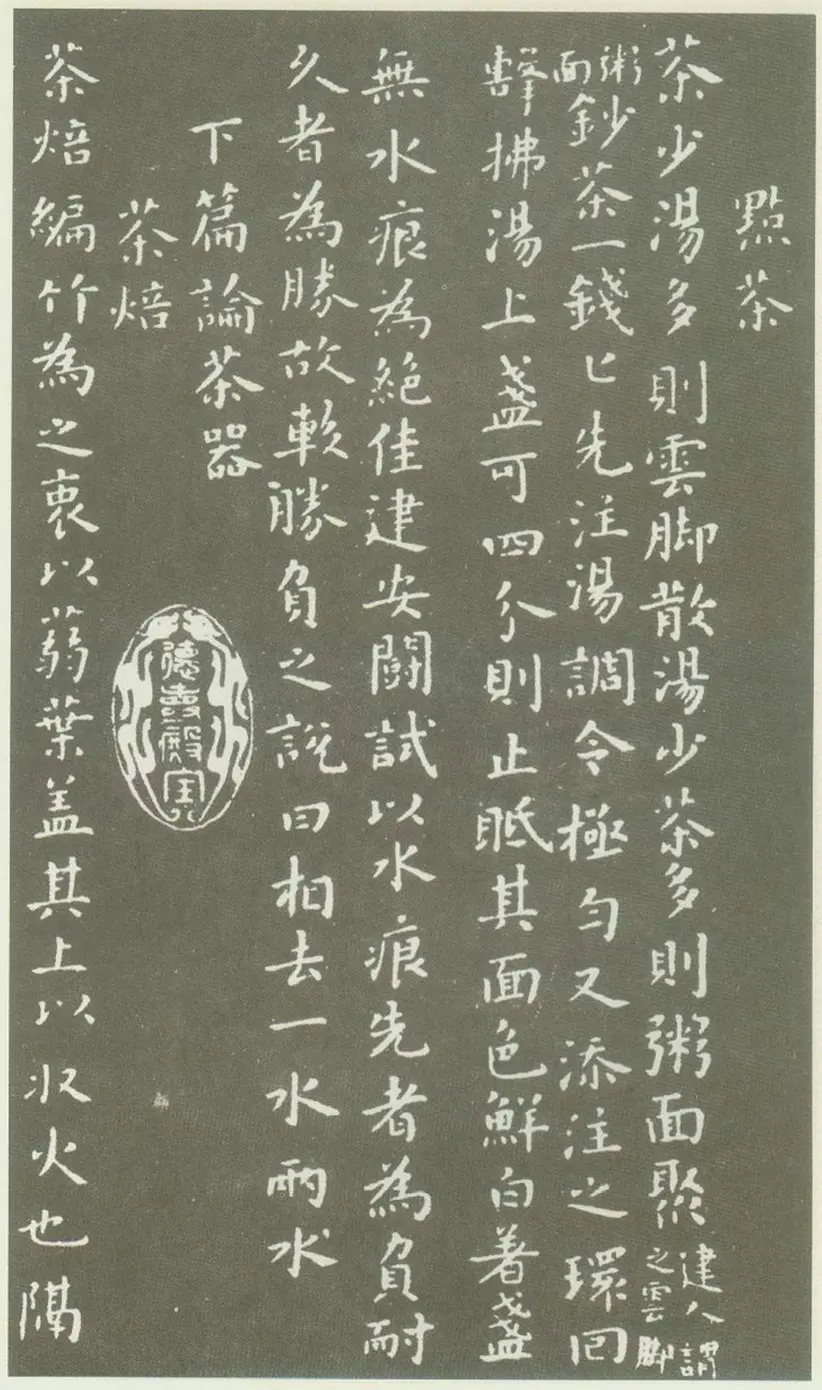 點茶
茶少湯多則雲脚散湯少茶多則粥面聚建人謂之雲脚
粥面鈔茶一錢匕先注湯調令極勻又添注之環回
擊拂湯上盞可四分則止眡其面色鮮白著盞
無水痕為絕佳建安鬬試以水痕先者為負耐
久者為勝故較勝負之說曰相去一水兩水
下篇論茶器
茶焙
德壽殿寶
茶焙編竹為之裹以蒻葉盖其上以收火也隔